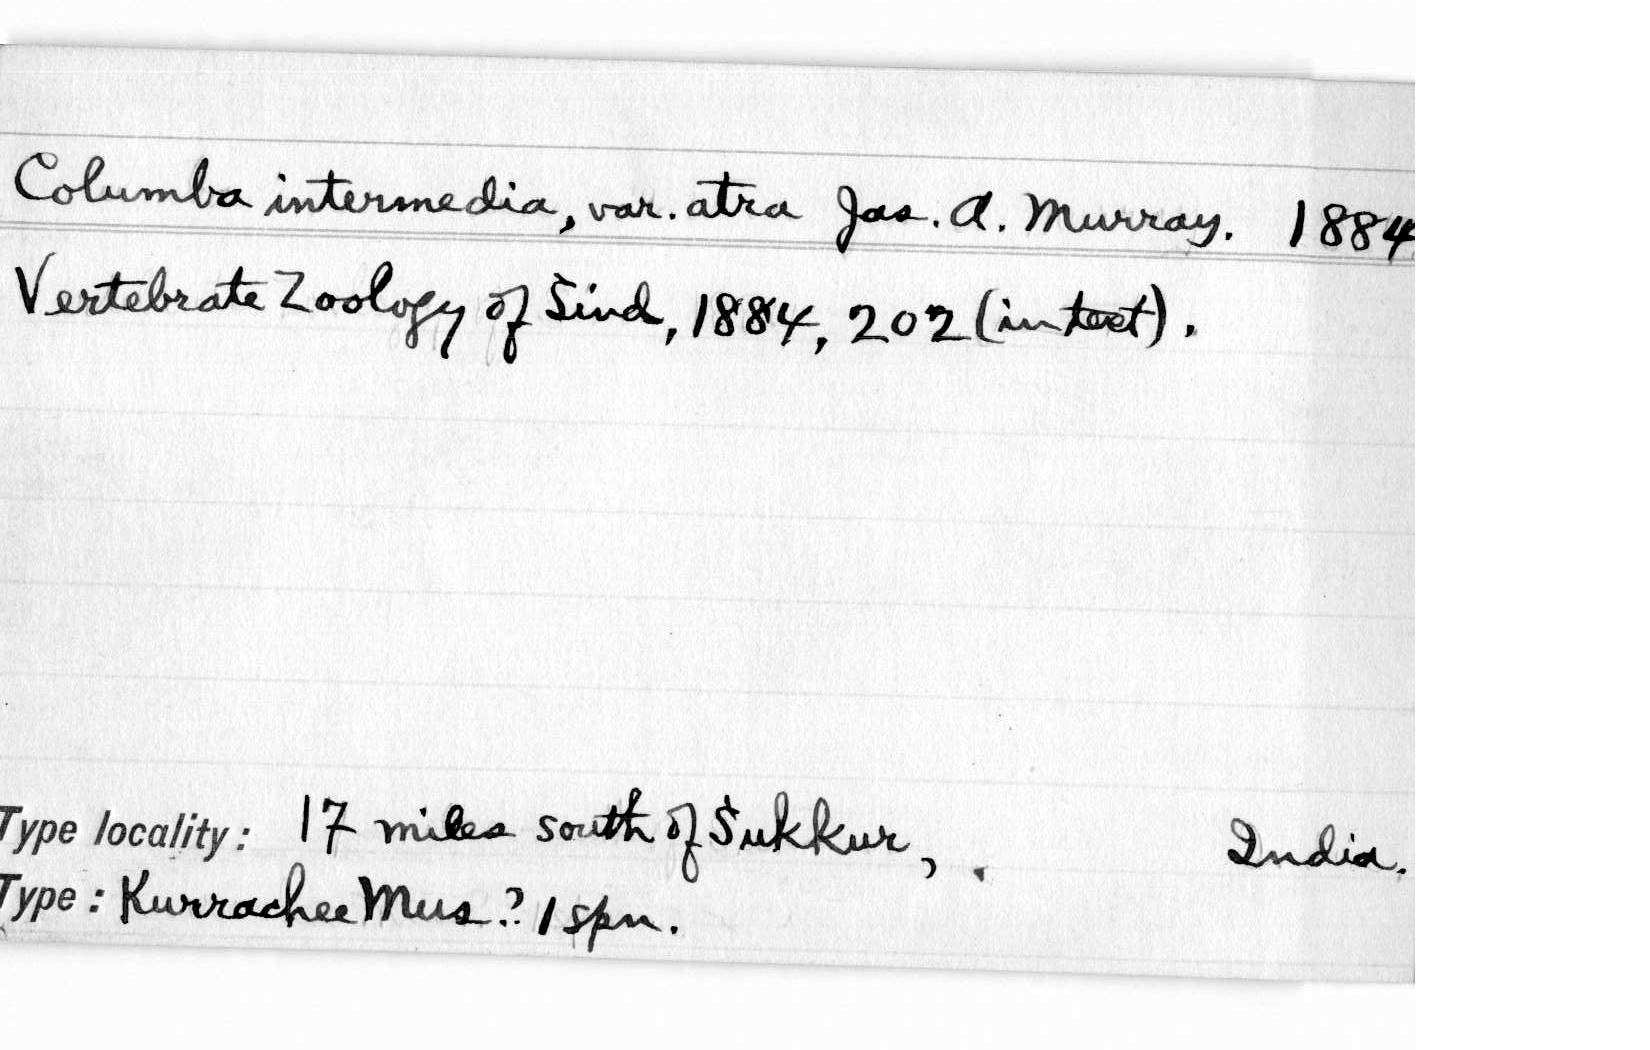 Columba intermedia, var. atra Jas. A. Murray. 1884
Vertebrate Zoology of Sind, 1884, 202 (in text).
Type locality: 17 miles south of Sukkur, India.
Type: Kurrachee Mus.? 1 spn.